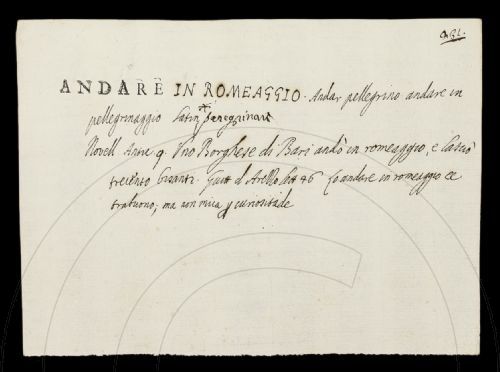 ANDARE IN ROMEAGGIO. Andar pellegrino andare in
pellegrinaggio Latin. peregrinari
Novell. Antic. 9. Uno Borghese di Bari andò in romeaggio, e lasciò
trecento bisanti. Guitt. d'Arezzo lett. 46 Lo andare in romeaggio è
trabuono; ma non mica curiositade